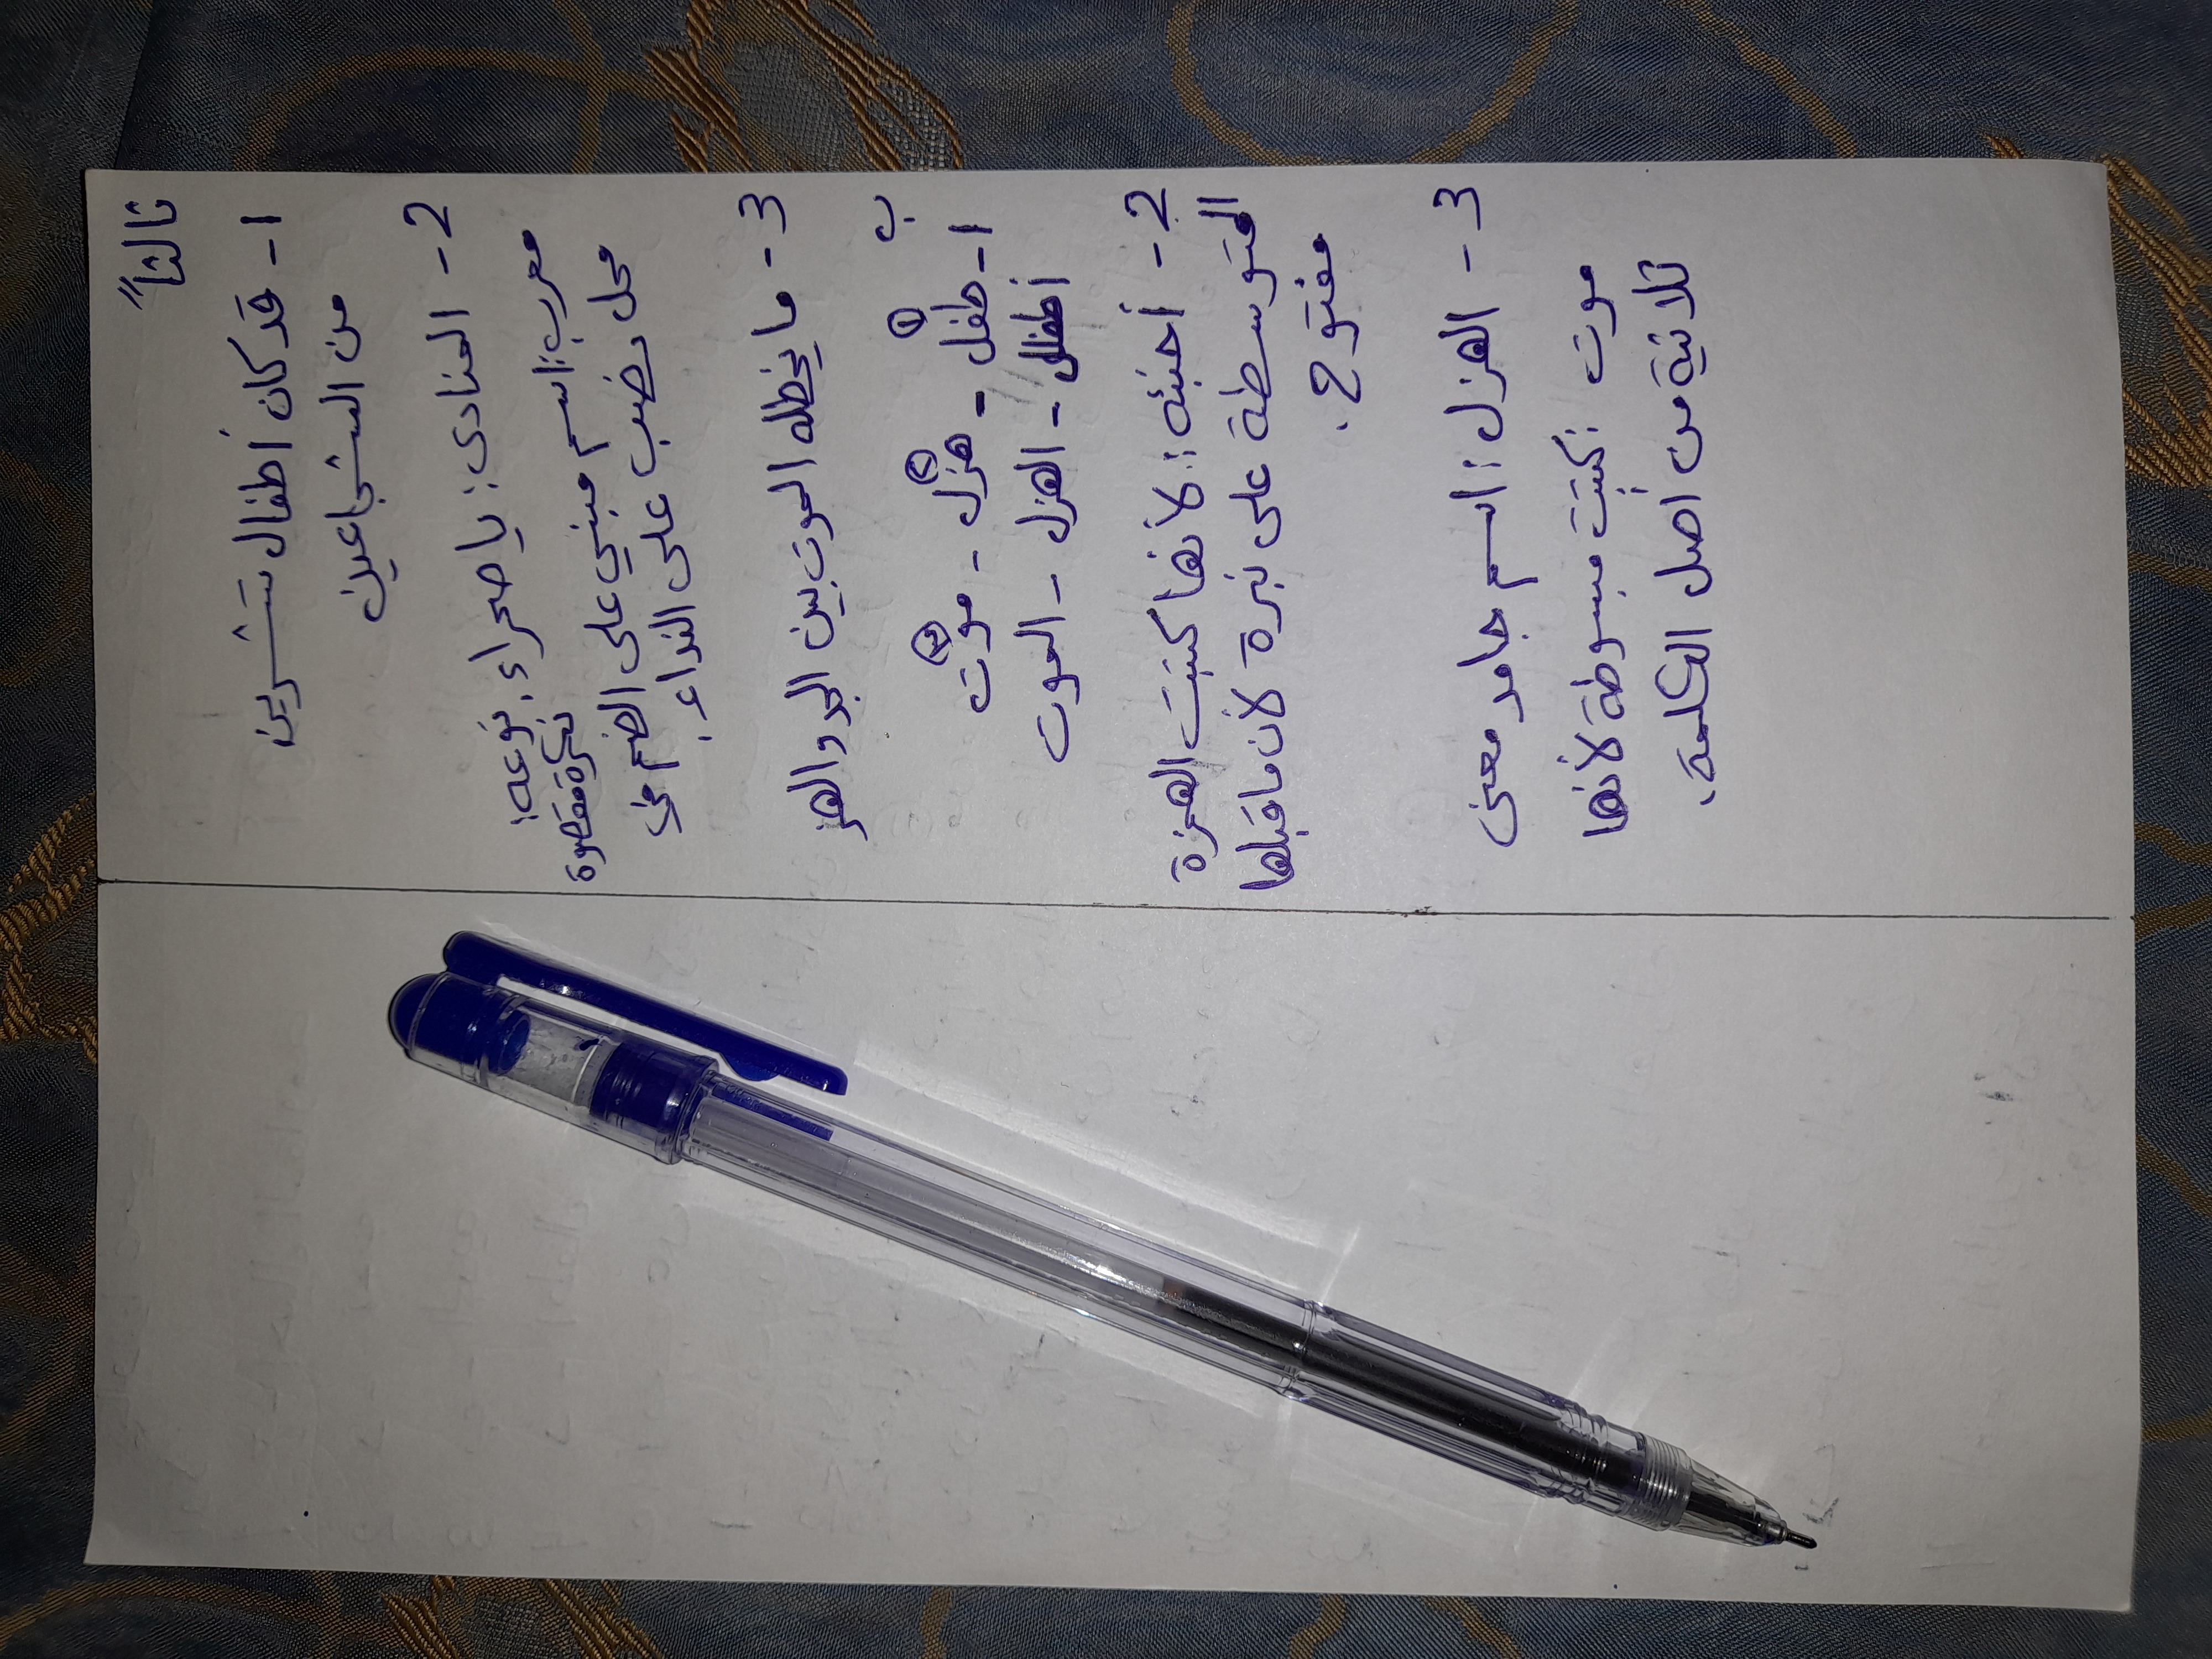 ثالثاً
1- قد كان أطفال تشرين
من الشجاعين
2- المنادى: يا صحراء، نوعه:
نكرة مقصودة
معرب: اسم مبني على الضم في
محل نصب على النداء.
3- ما يخطه الموت بين الجد والهز
ب
1- طفل① - هزل② - موت③
أطفال - الهزل - الموت
2- أخبئه: لأنها كتبت الهمزة
المتوسطة على نبرة لأن ما قبلها
مفتوح.
3- الهزل: اسم جامد معنى
موت: كتبت مبسوطة لأنها
ثلاثية من أصل الكلمة.